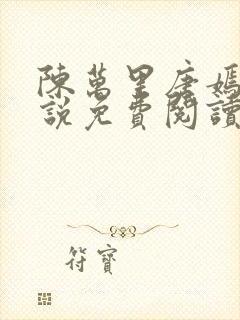 陳萬里唐嫣
說免費閱讀
符寶